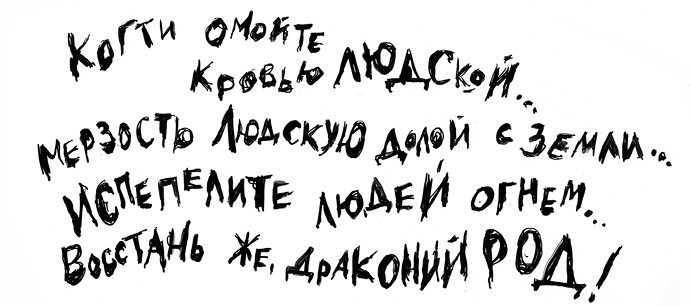 Когти омойте
кровью людской...
мерзость людскую долой с земли...
испепелите людей огнем...
Восстань же, драконий род!